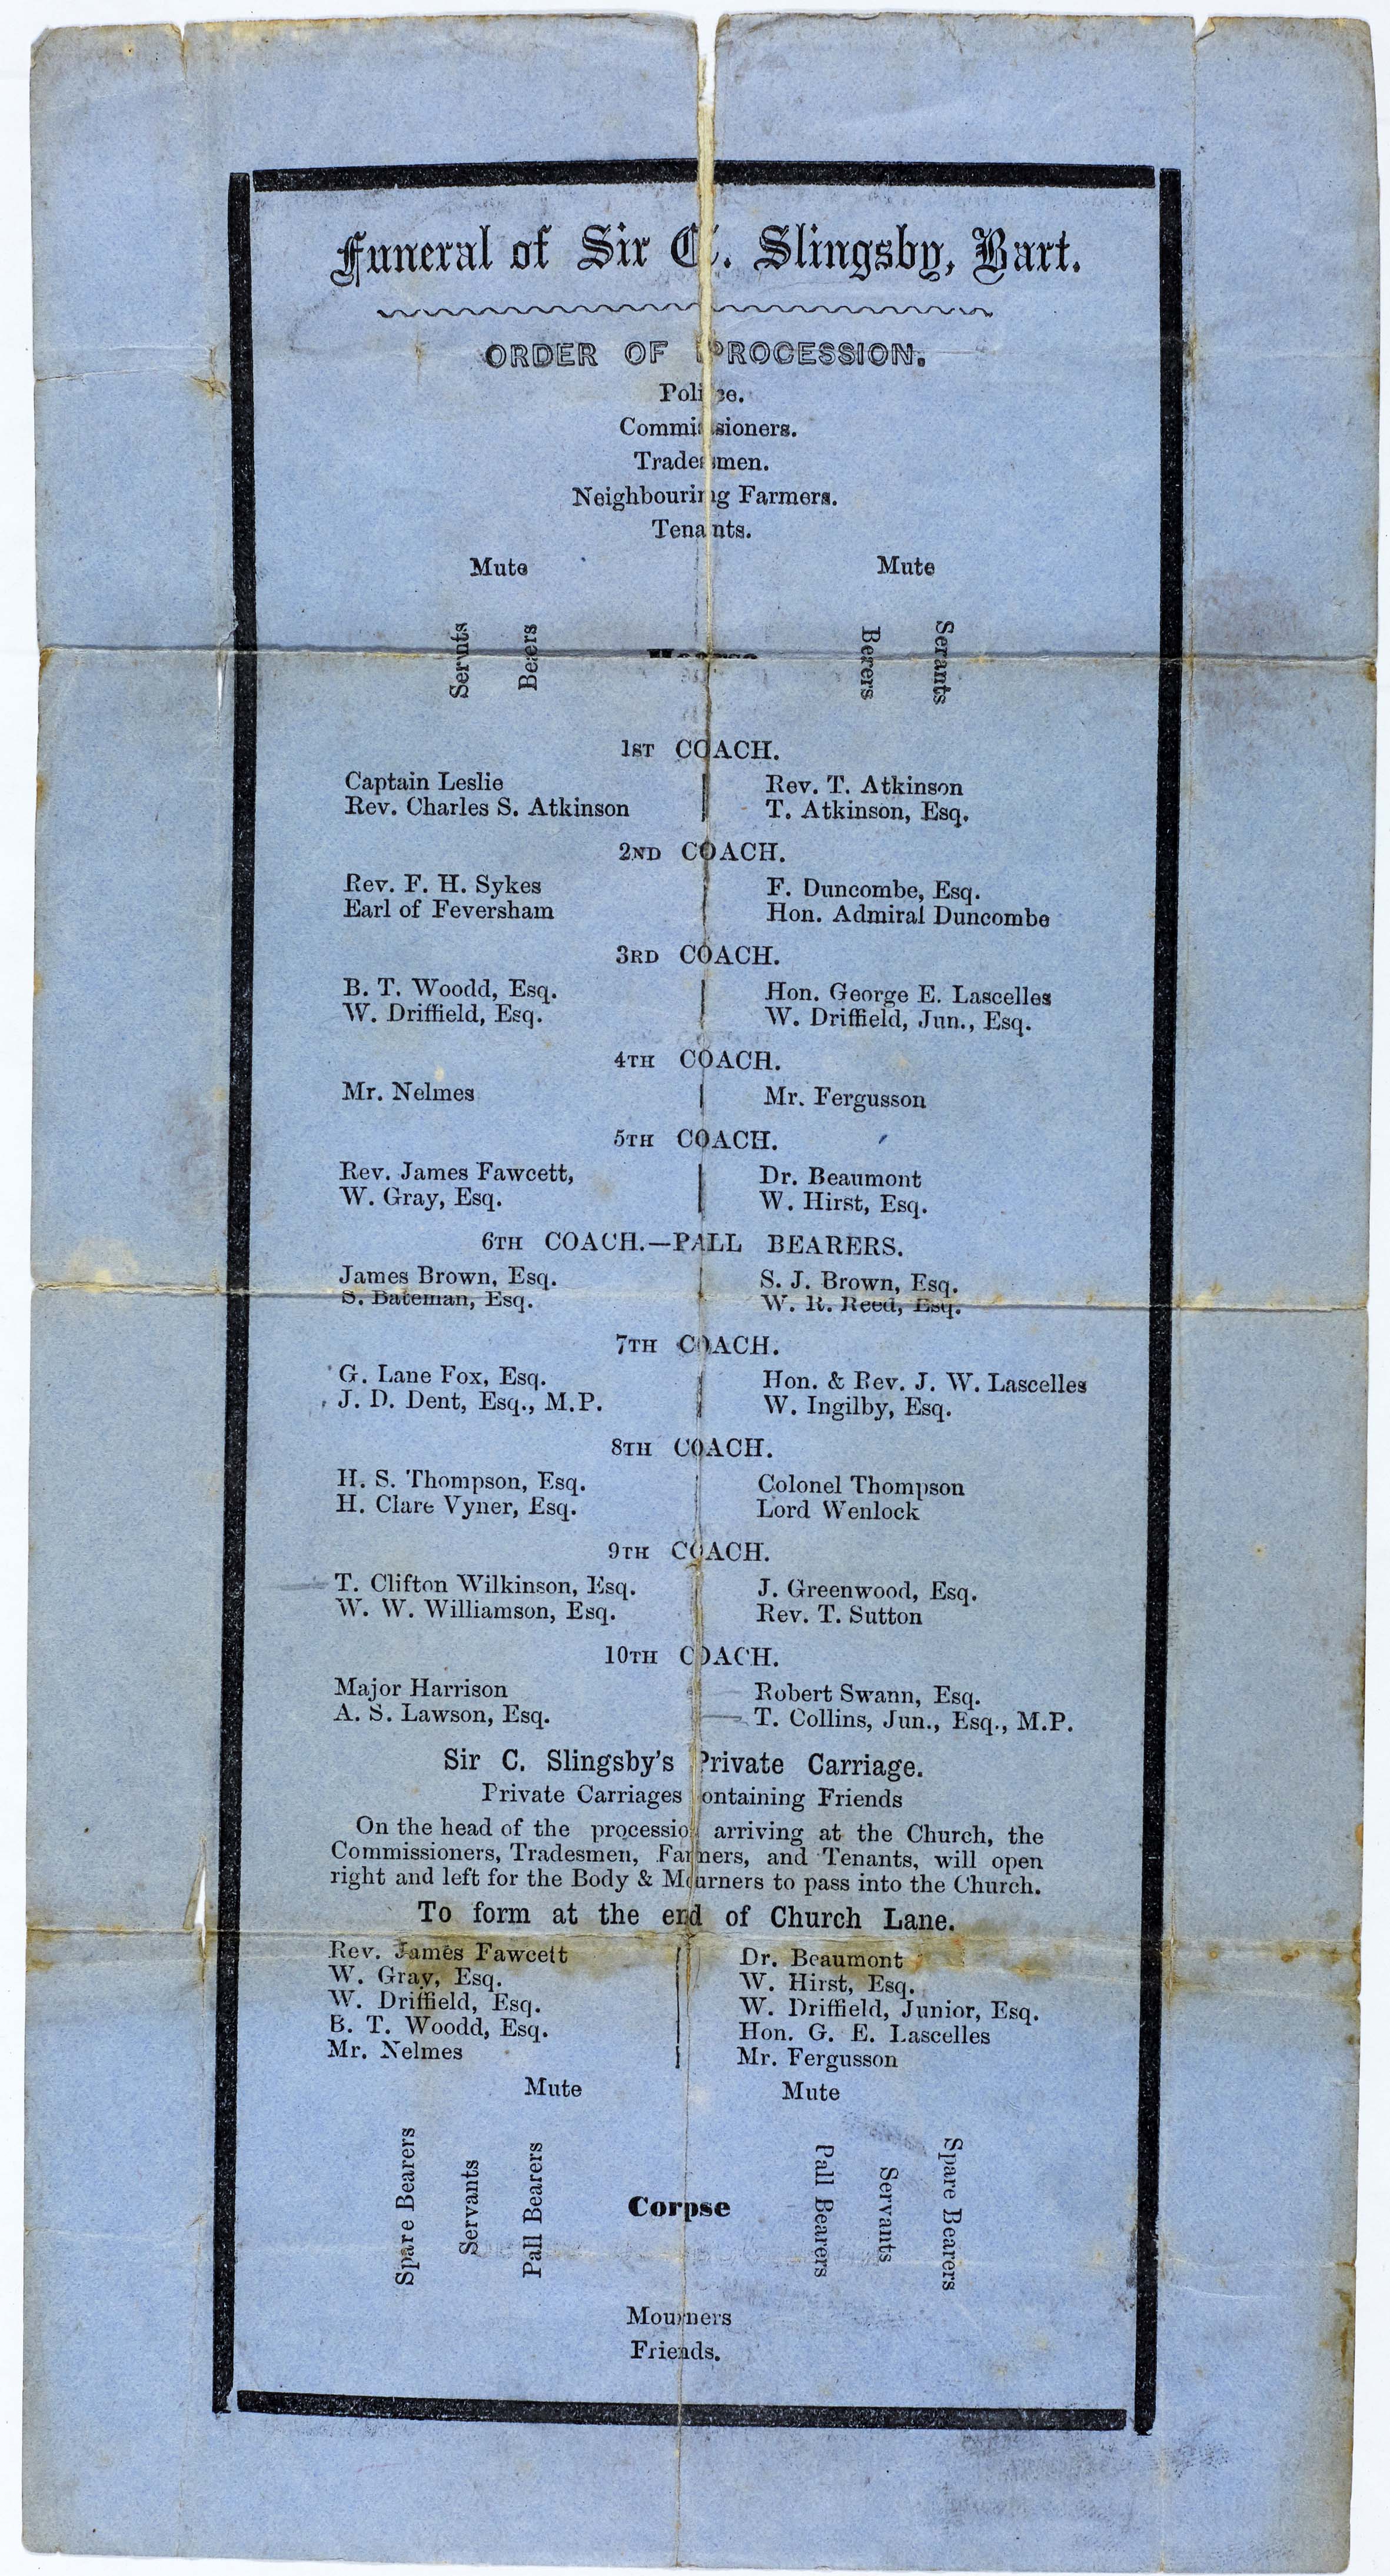 Funeral of Sir C. Slingsby, Bart.
ORDER OF PROCESSION.
Police.
Commissioners.
Tradesmen.
Neighbouring Farmers.
Tenants.
Mute Mute
Servants Bearers Hearse Bearers Servants
1ST COACH.
Captain Leslie Rev. T. Atkinson
Rev. Charles S. Atkinson T. Atkinson, Esq.
2ND COACH.
Rev. F. H. Sykes F. Duncombe, Esq.
Earl of Feversham Hon. Admiral Duncombe
3RD COACH.
B. T. Woodd, Esq. Hon. George E. Lascelles
W. Driffield, Esq. W. Driffield, Jun., Esq.
4TH COACH.
Mr. Nelmes Mr. Fergusson
5TH COACH.
Rev. James Fawcett, Dr. Beaumont
W. Gray, Esq. W. Hirst, Esq.
6TH COACH.—PALL BEARERS.
James Brown, Esq. S. J. Brown, Esq.
S. Bateman, Esq. W. R. Reed, Esq.
7TH COACH.
G. Lane Fox, Esq. Hon. & Rev. J. W. Lascelles
J. D. Dent, Esq., M.P. W. Ingilby, Esq.
8TH COACH.
H. S. Thompson, Esq. Colonel Thompson
H. Clare Vyner, Esq. Lord Wenlock
9TH COACH.
T. Clifton Wilkinson, Esq. J. Greenwood, Esq.
W. W. Williamson, Esq. Rev. T. Sutton
10TH COACH.
Major Harrison Robert Swann, Esq.
A. S. Lawson, Esq. T. Collins, Jun., Esq., M.P.
Sir C. Slingsby's Private Carriage.
Private Carriages containing Friends
On the head of the procession arriving at the Church, the
Commissioners, Tradesmen, Farmers, and Tenants, will open
right and left for the Body & Mourners to pass into the Church.
To form at the end of Church Lane.
Rev. James Fawcett Dr. Beaumont
W. Gray, Esq. W. Hirst, Esq.
W. Driffield, Esq. W. Driffield, Junior, Esq.
B. T. Woodd, Esq. Hon. G. E. Lascelles
Mr. Nelmes Mr. Fergusson
Mute Mute
Spare Bearers Servants Pall Bearers Corpse Pall Bearers Servants Spare Bearers
Mourners
Friends.